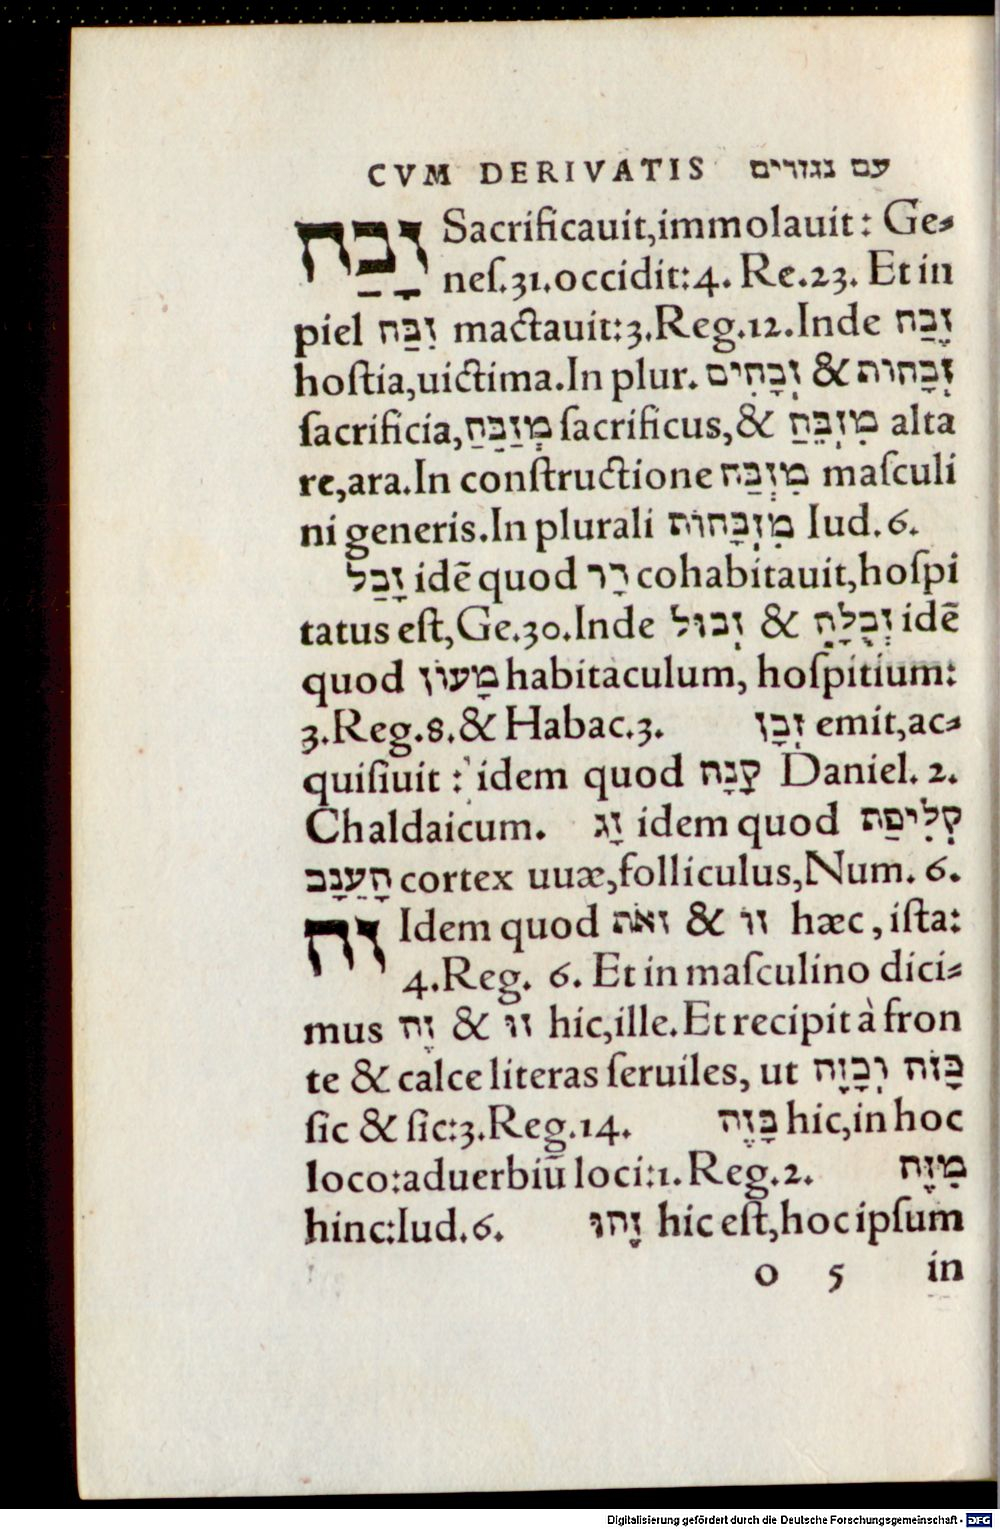 CVM DERIVATIS עם נגזרים
זָבַח Sacrificauit,immolauit: Ge⸗
neſ.31.occidit:4. Re.23. Et in
piel זִבַּח mactauit:3.Reg.12.Inde זֶבַח
hoſtia,uictima.In plur. זְבָחִים & זְבָחוֹת
ſacrificia,מְזַבֵּחַ ſacrificus,& מִזְבֵּחַ alta
re,ara.In conſtructione מִזְבַּח maſculi
ni generis.In plurali מִזְבָּחוֹת Iud.6.
זָבַל idē quod דָר cohabitauit,hoſpi
tatus eſt,Ge.30.Inde זְבוּל & זְבֻלָה idē
quod מָעוֹן habitaculum, hoſpitium:
3.Reg.8.& Habac.3. זְבָן emit,ac⸗
quiſiuit : idem quod קָנָה Daniel. 2.
Chaldaicum. זָג idem quod קְלִיפַּת
הָעֵנָב cortex uuæ,folliculus,Num. 6.
זֹה Idem quod זאֹת & זוֹ hæc , iſta:
4.Reg. 6. Et in maſculino dici⸗
mus זֶה & זוּ hic,ille.Et recipit à fron
te & calce literas ſeruiles, ut כָּזֹה וְכָזֶה
ſic & ſic:3.Reg.14. בָּזֶה hic,in hoc
loco:aduerbiū loci:1.Reg.2. מִזֶּה
hinc:Iud.6. זָהוּ hic eſt,hoc ipſum
o 5 in
Digitalisierung gefördert durch die Deutsche Forschungsgemeinschaft - DFG